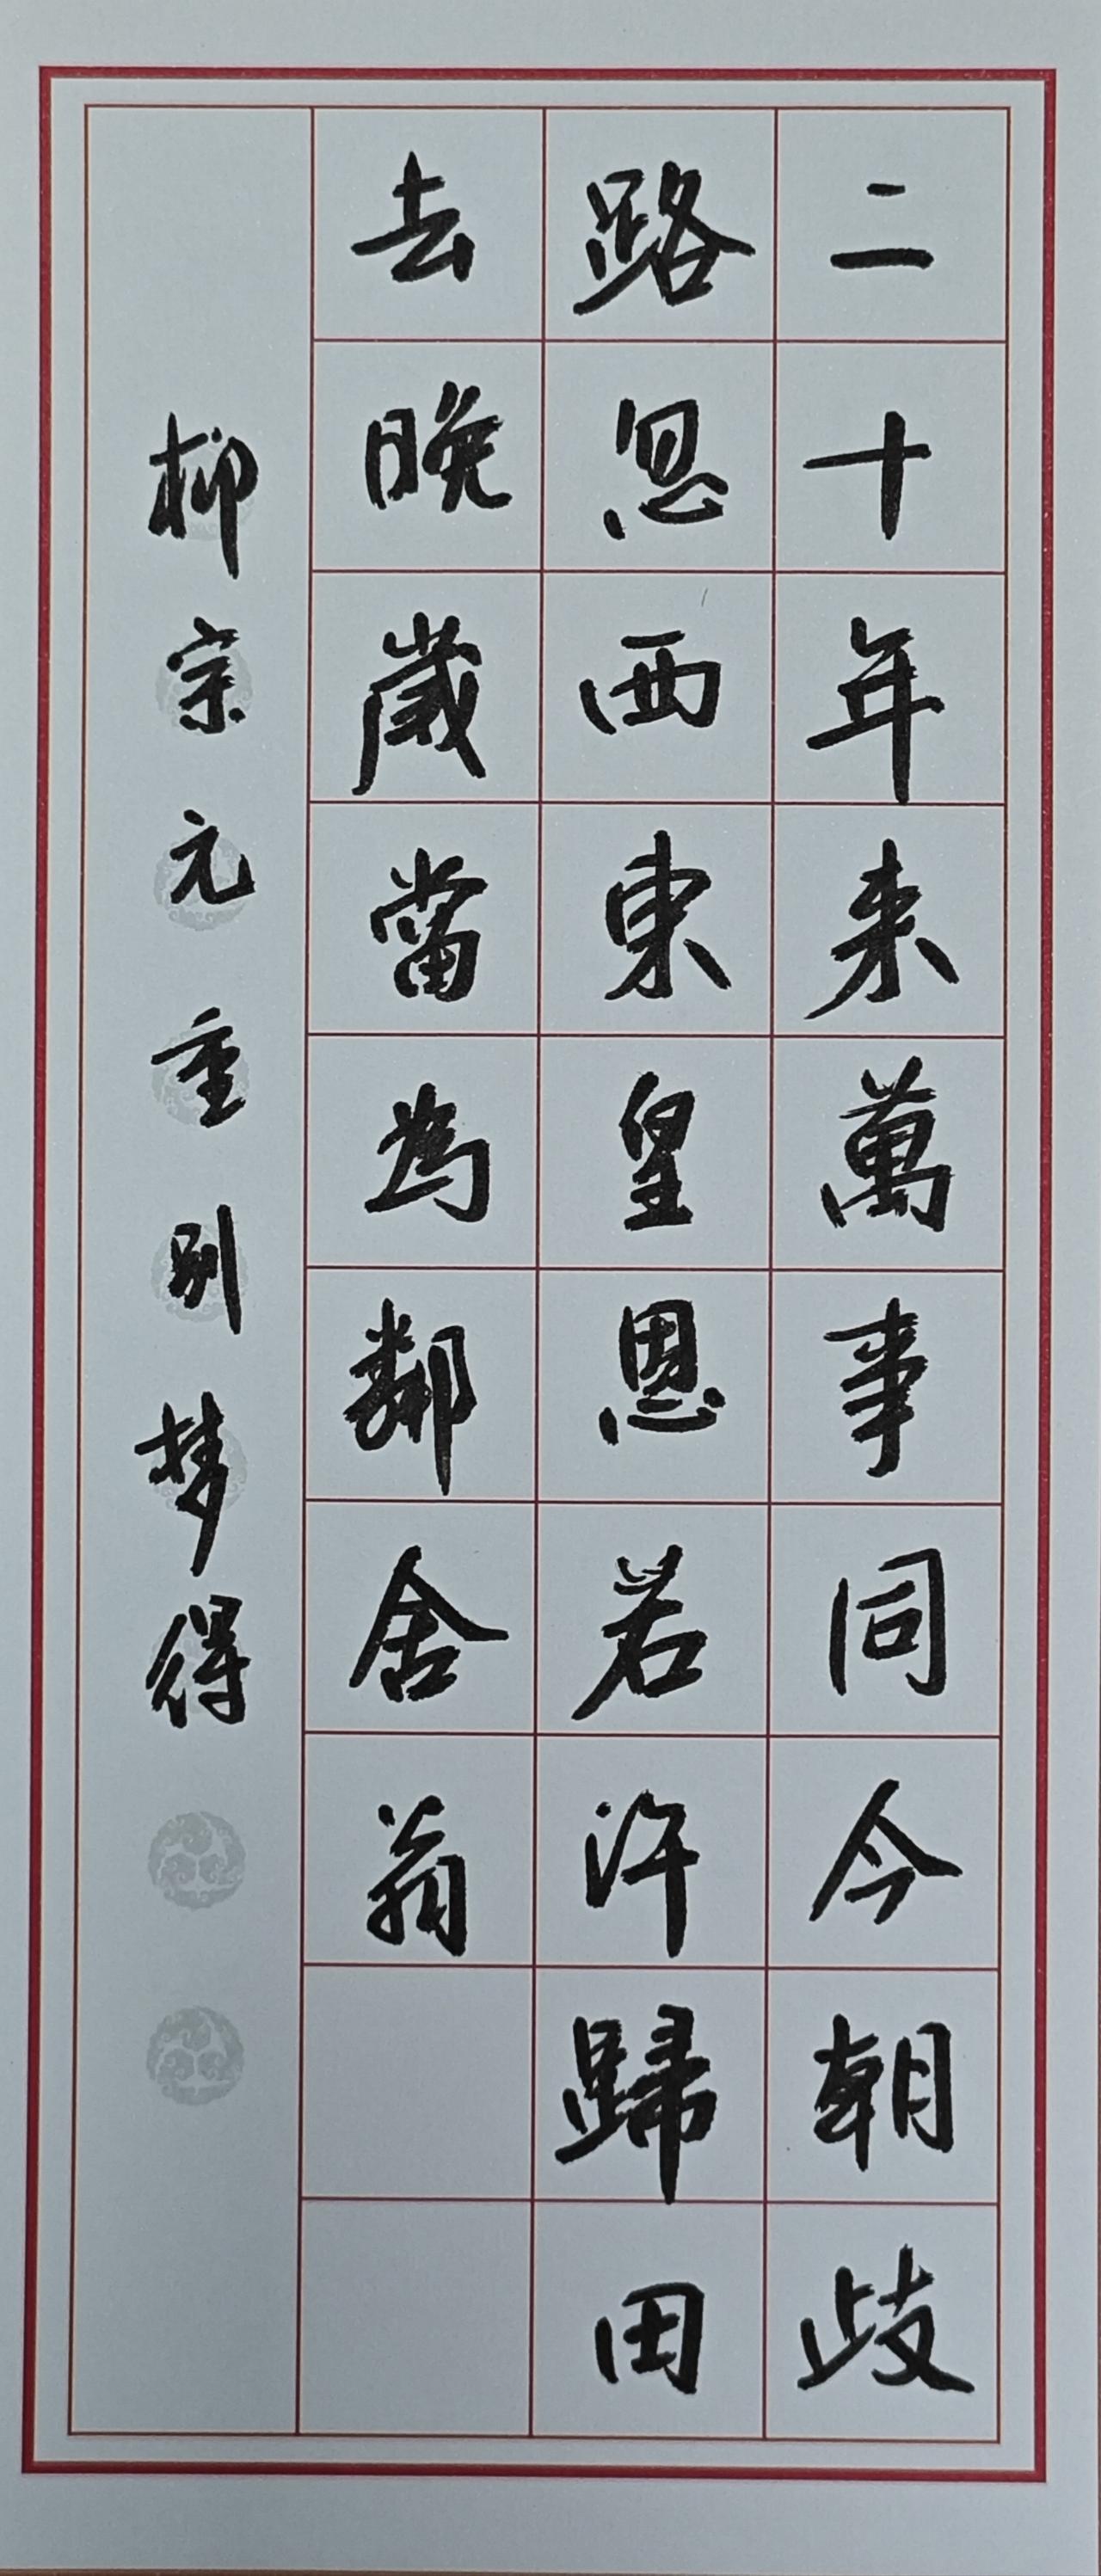 二十年来萬事同今朝歧
路忽西東皇恩若許歸田
去晚歲當為鄰舍翁
柳宗元重别梦得